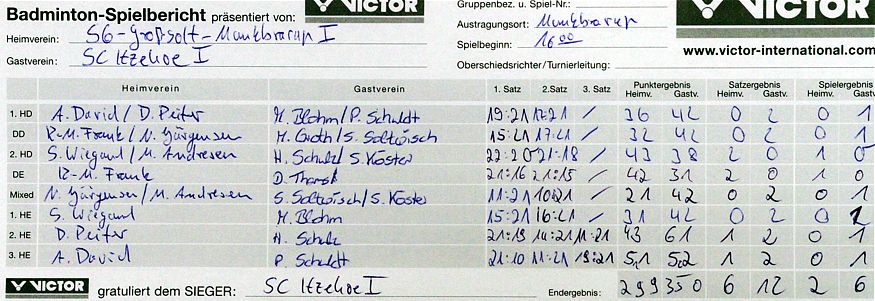 VICTOR
Badminton-Spielbericht präsentiert von:
VICTOR
Gruppenbez. u. Spiel-Nr.:
Heimverein: SG-Großsolt-Munkbrarup I
Austragungsort: Munkbrarup
Gastverein: SC Itzehoe I
Spielbeginn: 16 00
www.victor-international.com
Oberschiedsrichter/Turnierleitung:
Heimverein Gastverein 1. Satz 2. Satz 3. Satz Punktergebnis Heimv. Gastv. Satzergebnis Heimv. Gastv. Spielergebnis Heimv. Gastv.
1. HD A. David / D. Peiter M. Blohm / P. Schuldt 19:21 17:21 / 36 42 0 2 0 1
DD B.-M. Frank / N. Jürgensen M. Groth / S. Soltwisch 15:21 17:21 / 32 42 0 2 0 1
2. HD S. Wiegand / M. Andresen H. Schulz / S. Köster 22:20 21:18 / 43 38 2 0 1 0
DE B.-M. Frank D. 21:16 21:15 / 42 31 2 0 1 0
Mixed N. Jürgensen / M. Andresen S. Soltwisch / S. Köster 11:21 10:21 / 21 42 0 2 0 1
1. HE S. Wiegand M. Blohm 15:21 16:21 / 31 42 0 2 0 1
2. HE D. Peiter H. Schulz 21:19 14:21 11:21 43 61 1 2 0 1
3. HE A. David P. Schuldt 21:10 11:21 19:21 51 52 1 2 0 1
VICTOR gratuliert dem SIEGER: SC Itzehoe I Endergebnis: 299 350 6 12 2 6